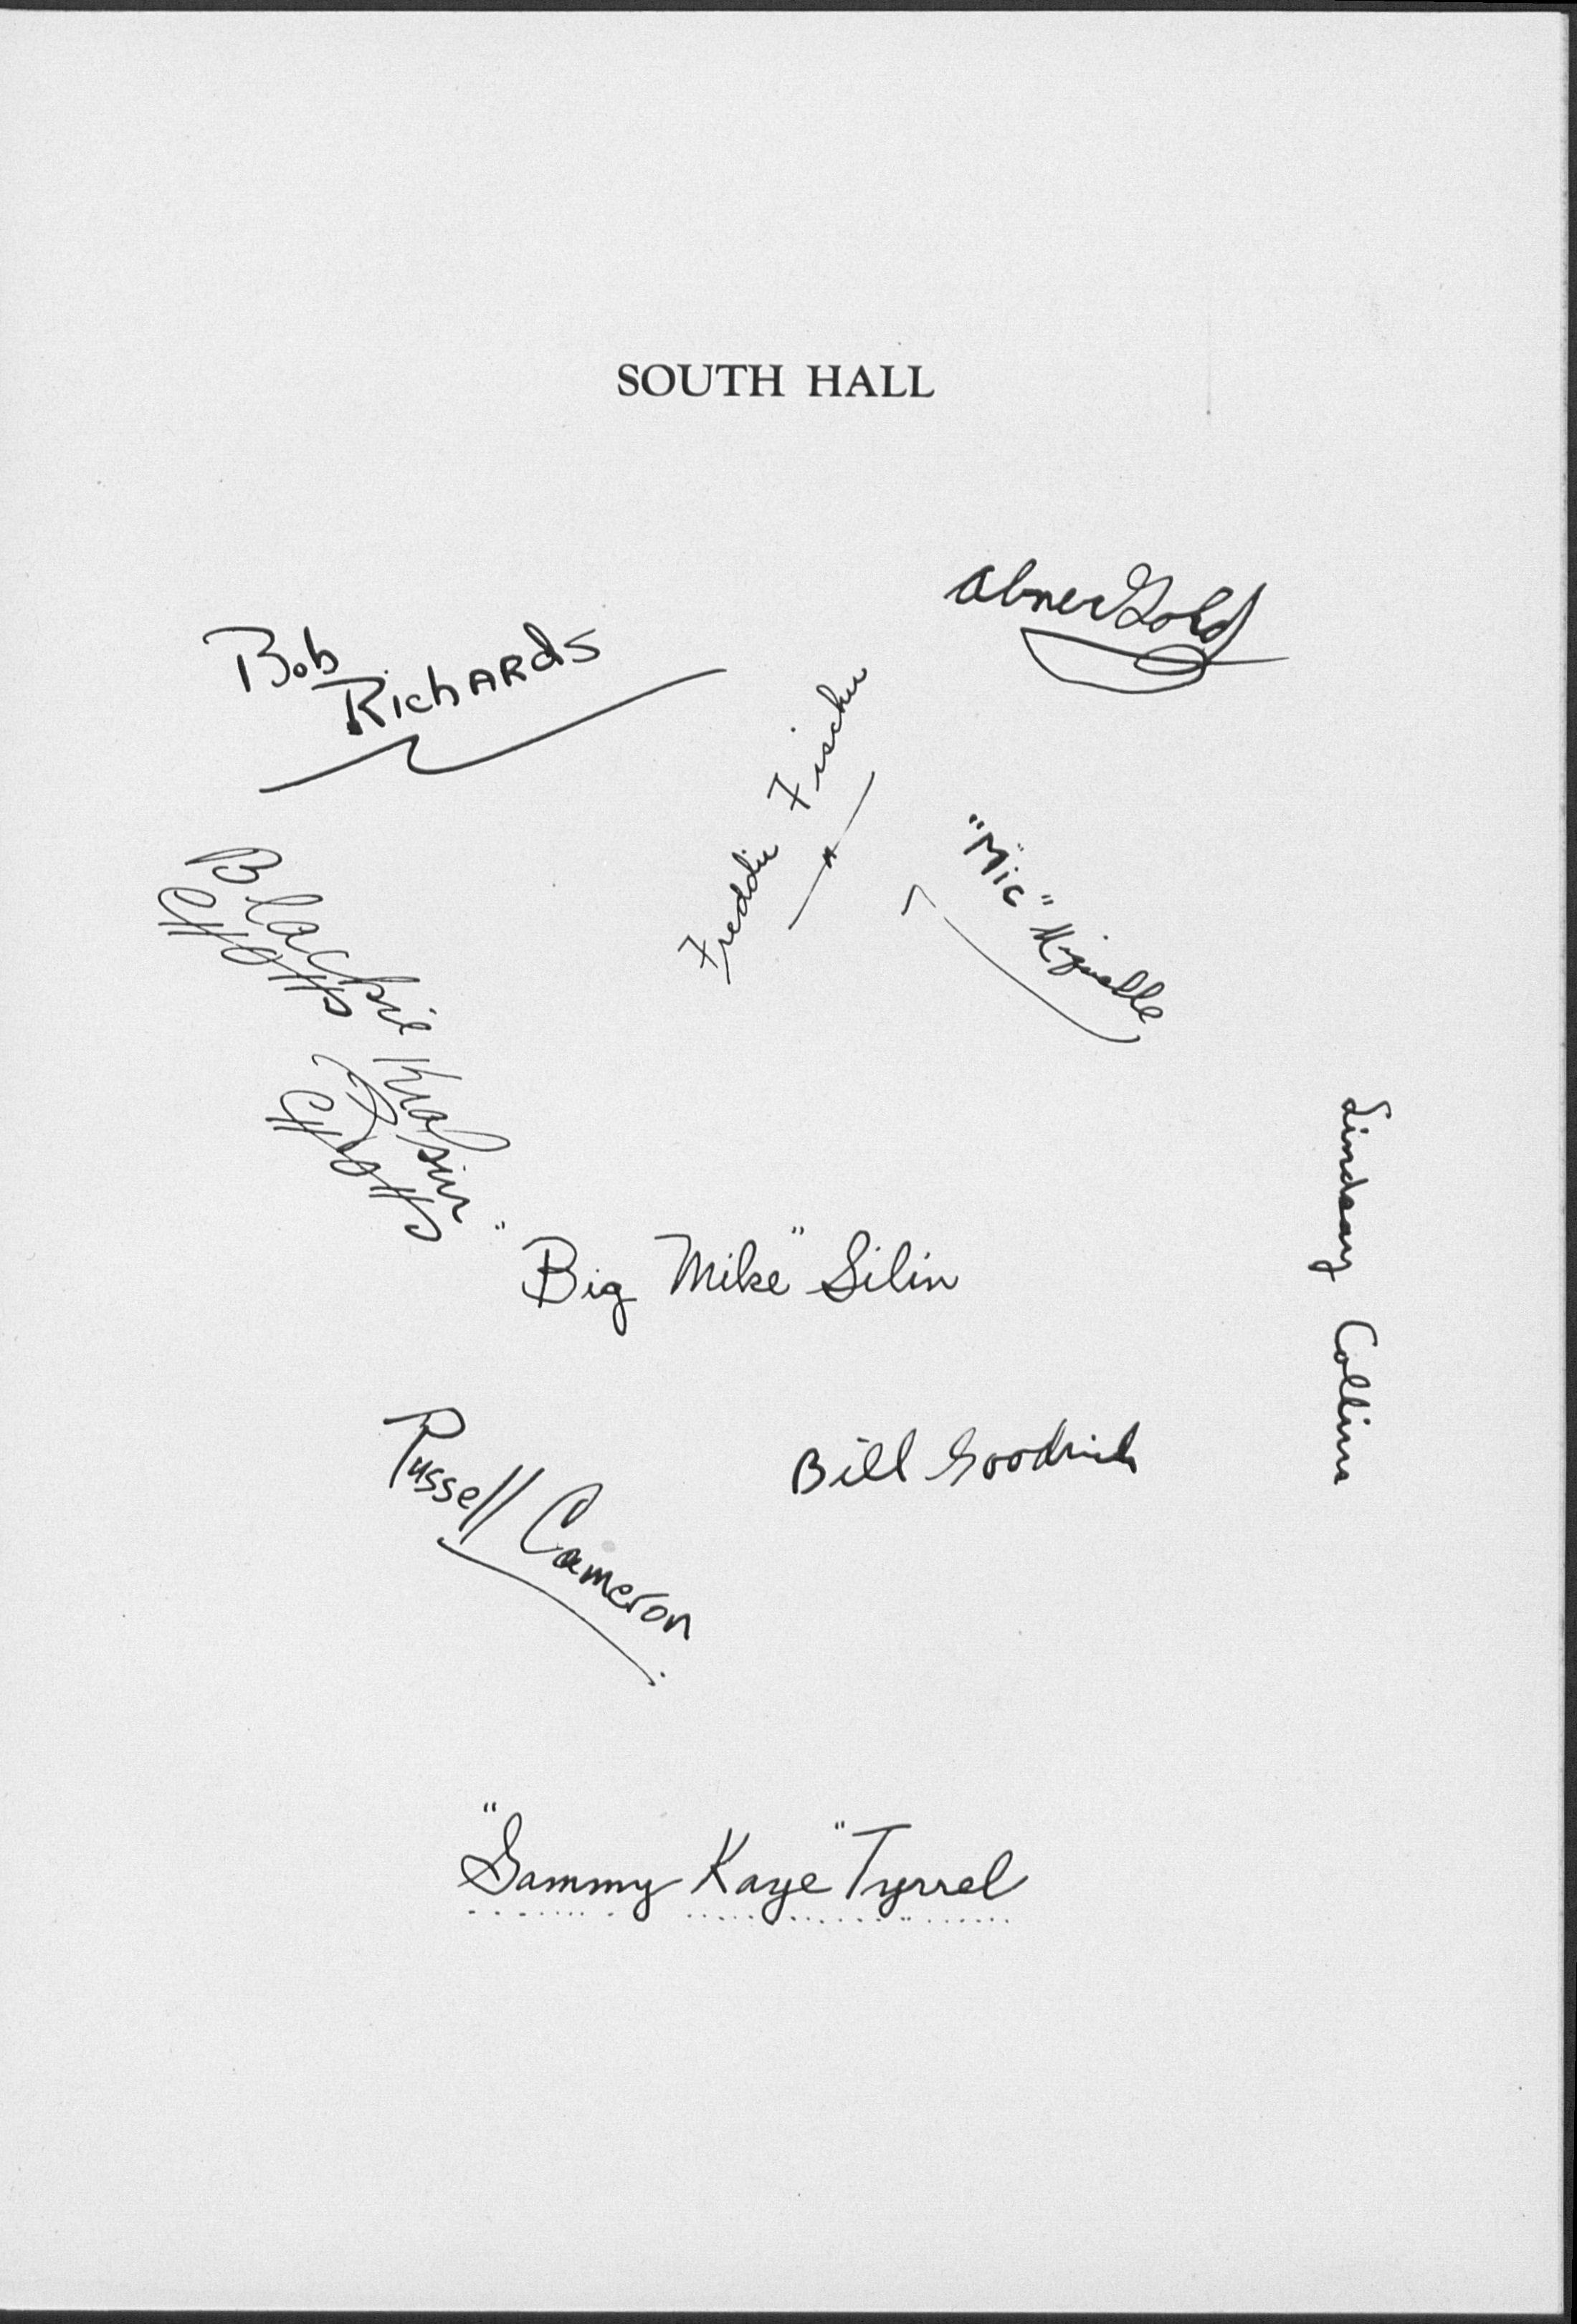 SOUTH HALL
Abner Gold
Bob
Richards
Freddie Fischer
"Mic"
Blackie
Lindsay Collins
"Big Mike" Silin
Russell Cameron
Bill Goodrich
"Sammy Kaye" Tyrrel